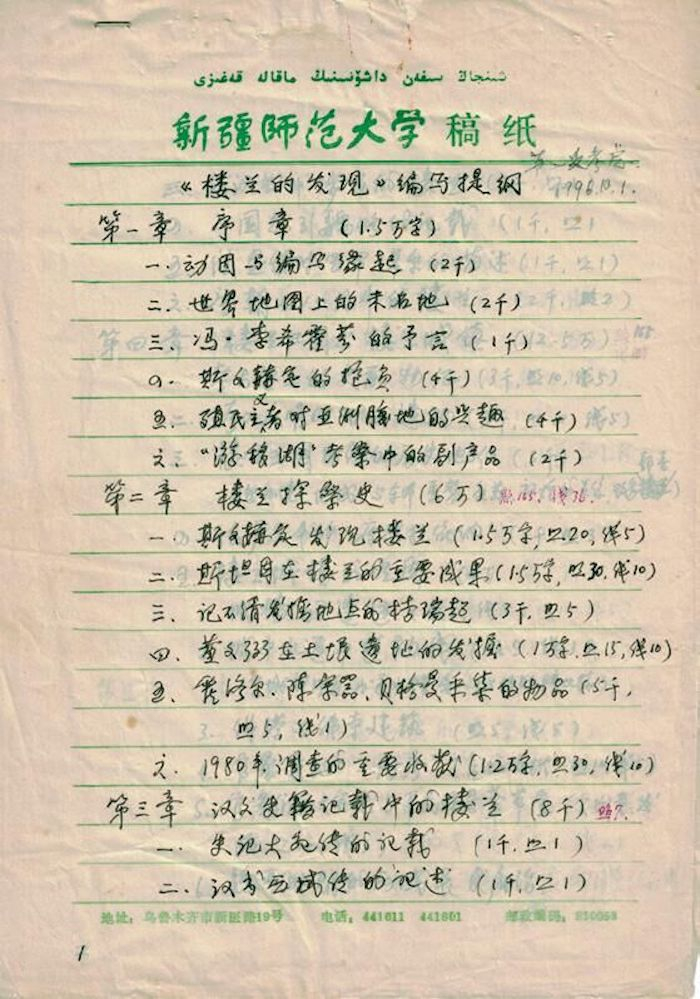 شىنجاڭ سىفەن داشۆسىنىڭ ماقالە قەغىزى
新疆师范大学 稿纸
《楼兰的发现》编写提纲 1996.10.1.
第一章 序章 (1.5万字)
一. 动因与编写缘起 (2千)
二. 世界地图上的未名地 (2千)
三. 冯·李希霍芬的予言 (1千)
四. 斯文赫定的抱负 (4千)
五. 殖民主义者对亚洲腹地的兴趣 (4千)
六. “游移湖”考察中的副产品 (2千)
第二章 楼兰探察史 (6万)
一. 斯文赫定发现楼兰 (1.5万字, 照20, 线5)
二. 斯坦因在楼兰的主要成果 (1.5万字, 照30, 线10)
三. 记不清发掘地点的桔瑞超 (3千, 照5)
四. 黄文弼在土垠遗址的发掘 (1万字, 照15, 线10)
五. 霍涅尔、陈宗器、贝格曼采集的物品 (5千,
照5, 线1)
六. 1980年调查的重要收获 (1.2万字, 照30, 线10)
第三章 汉文史籍记载中的楼兰 (8千) 照7.
一. 史记大宛传的记载 (1千, 照1)
二. 汉书西域传的记述 (1千, 照1)
地址: 乌鲁木齐市新医路19号 电话: 441611 441601 邮政编码:
1